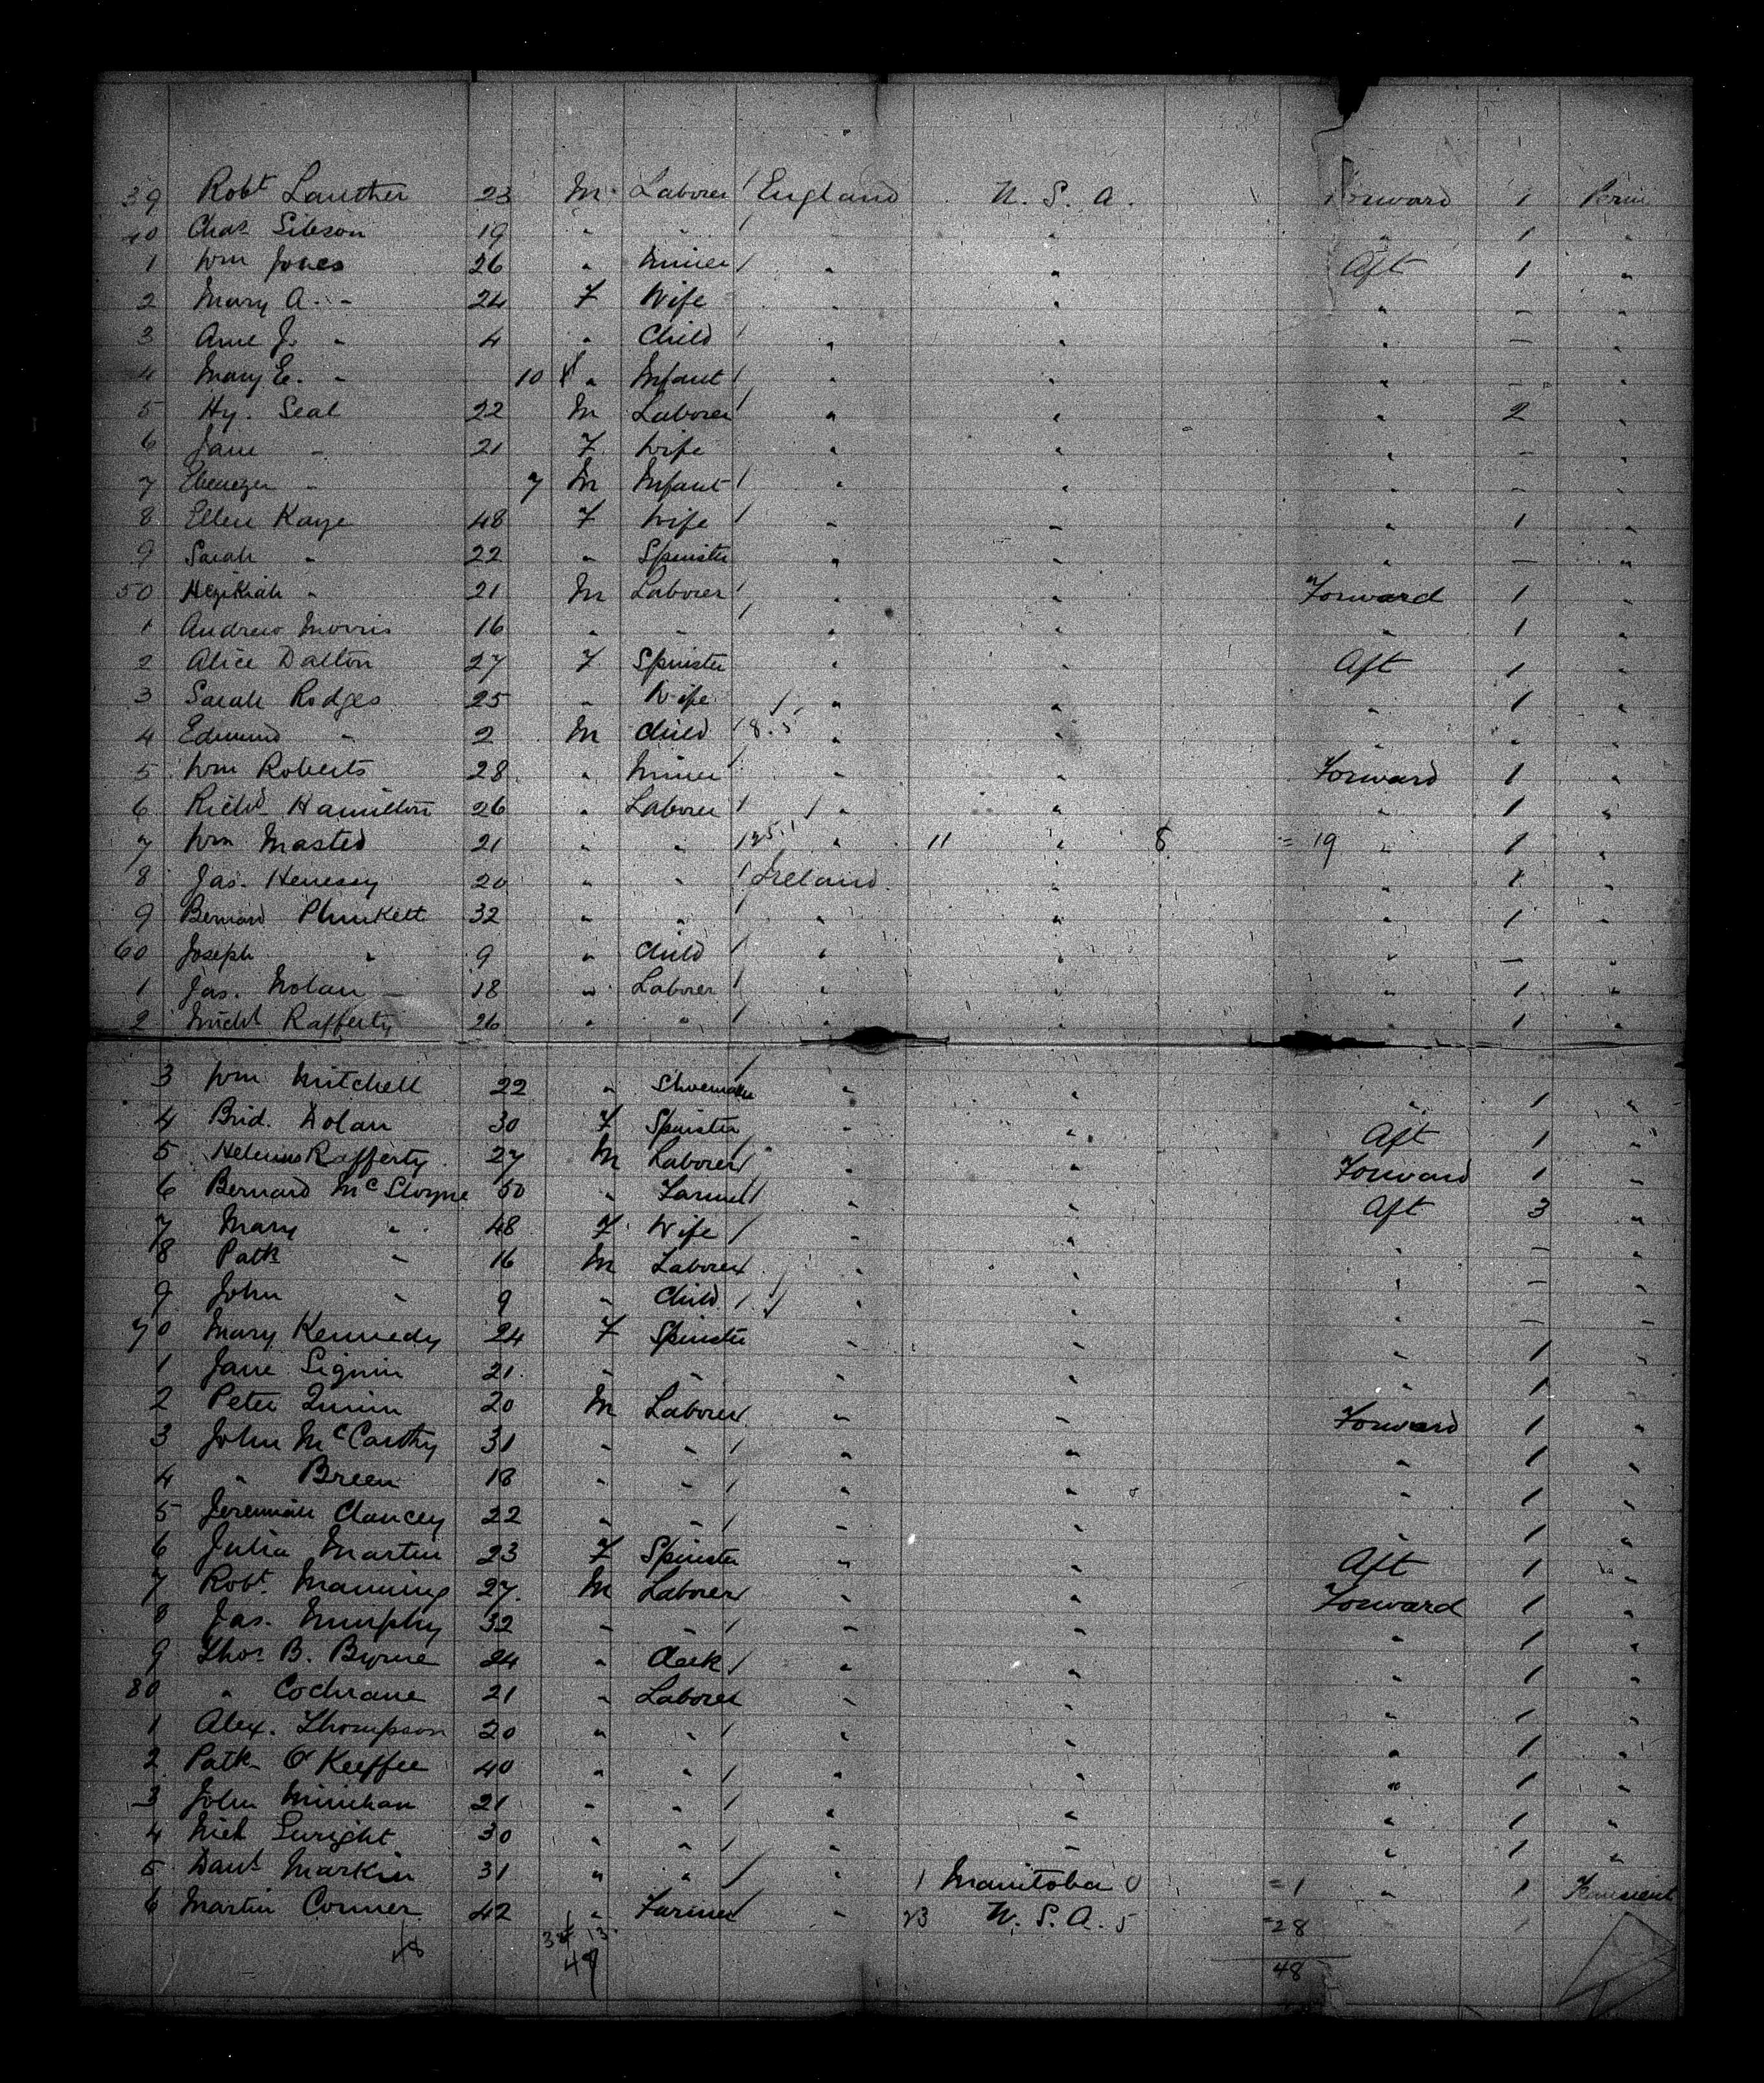 39 Robt Lauther 23 M Laborer / England U. S. A. Forward 1
40 Chas Gibson 19 " " / " " 1 "
1 Wm Jones 26 " Miner / " " Aft 1 "
2 Mary A. " 24 F Wife " " " - "
3 Ame J. " 4 " Child / " " " - "
4 Mary E. " 10 " Infant / " " " - "
5 Hy. Seal 22 M Laborer / " " " 2 "
6 Jane " 21 F Wife " " " - "
7 Ebenezer " 7 M Infant / " " " - "
8 Ellen Kaye 48 F Wife / " " " 1 "
9 Sarah " 22 " Spinster " " " - "
50 Hezikiah " 21 M Laborer / " " Forward 1 "
1 Andrew Morris 16 " " / " " " 1 "
2 Alice Dalton 27 F Spinster " " Aft 1 "
3 Sarah Rodges 25 " Wife / " " " 1 "
4 Edmund " 2 M Child / 8. 3 " " " " "
5 Wm Roberts 28 " Miner / " " Forward 1 "
6 Richd Hamilton 26 " Laborer / / " " " 1 "
7 Wm Masted 21 " " / " 11 " 8 = 19 " 1 "
8 Jas. Henesey 20 " " / Ireland " " 1 "
9 Bernard Plunkett 32 " " / " " " 1 "
60 Joseph " 9 " Child / " " " - "
1 Jas. Nolan 18 " Laborer / " " " 1 "
2 Michl Rafferty 26 " " / " " " 1 "
3 Wm Mitchell 22 " Shoemaker / " " " 1 "
4 Brid. Dolan 30 F Spinster " " Aft 1 "
5 Rafferty 27 M Laborer / " " Forward 1 "
6 Bernard Mc Sloyne 50 " Farmer / " " Aft 3 "
7 Mary " 48 F Wife / " " " - "
8 Patk " 16 M Laborer / " " " - "
9 John " 9 " Child / / " " - "
70 Mary Kennedy 24 F Spinster " " " 1 "
1 Jane 21 " " " " " 1 "
2 Peter Quinn 20 M Laborer / " " Forward 1 "
3 John McCarthy 31 " " / " " " 1 "
4 " Breen 18 " " / " " " 1 "
5 Jeremiah Clancey 22 " " / " " " 1 "
6 Julia Martin 23 F Spinster " " Aft 1 "
7 Robt. Manning 27 M Laborer / " " Forward 1 "
8 Jas. Murphy 32 " " / " " " 1 "
9 Thos B. Byrne 24 " Clerk / " " " 1 "
80 " Cochrane 21 " Laborer " " " 1 "
1 Alex. Thompson 20 " " / " " " 1 "
2 Patk O'Keeffee 40 " " / " " " 1 "
3 John Minehan 21 " " / " " " 1 "
4 30 " " / " " " 1 "
5 Danl Markin 31 " " / " 1 Manitoba 0 = 1 " 1
6 Martin Conner 42 " Farmer / " 23 U. S. A. 5 = 28 1
48 13 49 48